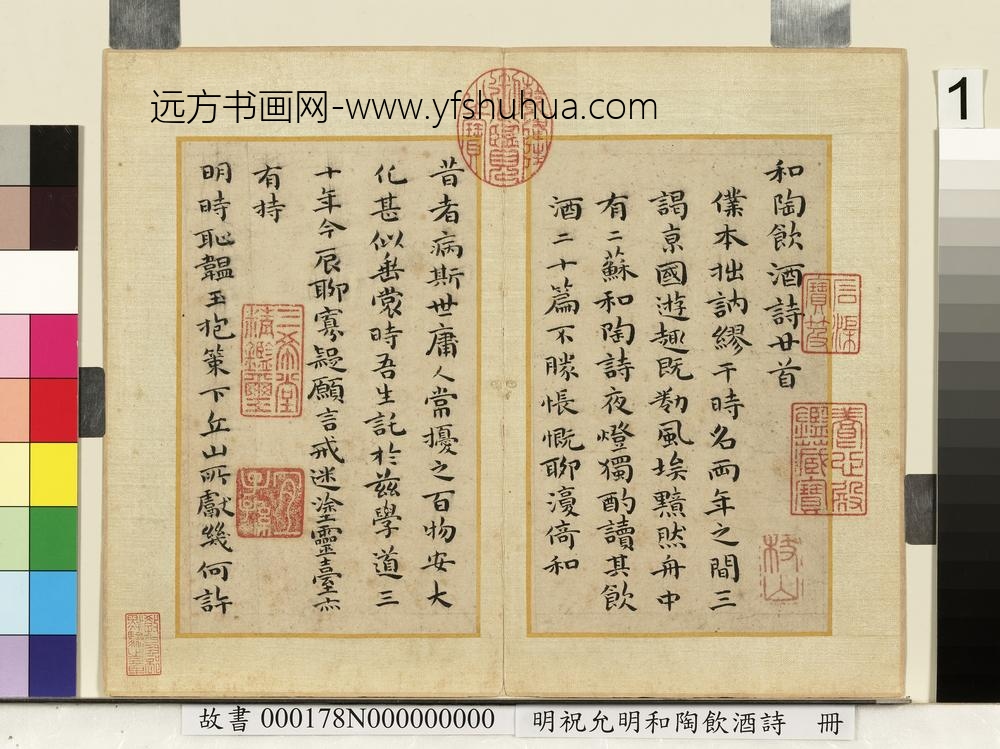 远方书画网-www.yfshuhua.com
1
和陶飲酒詩廿首
僕本拙訥繆干時名兩年之間三
謁京國遊趣既勌風埃黯然舟中
有二蘇和陶詩夜燈獨酌讀其飲
酒二十篇不勝悵慨聊漫倚和
昔者病斯世庸人常擾之百物安大
化甚似垂裳時吾生託於茲學道三
十年今辰聊寡疑願言戒迷塗靈臺亦
有持
明時恥韞玉抱策下丘山所獻幾何許
石渠寶笈
養心殿鑑藏寶
枝山
三希堂精鑑璽
宜子孫
故書 000178N000000000
明祝允明和陶飲酒詩 冊